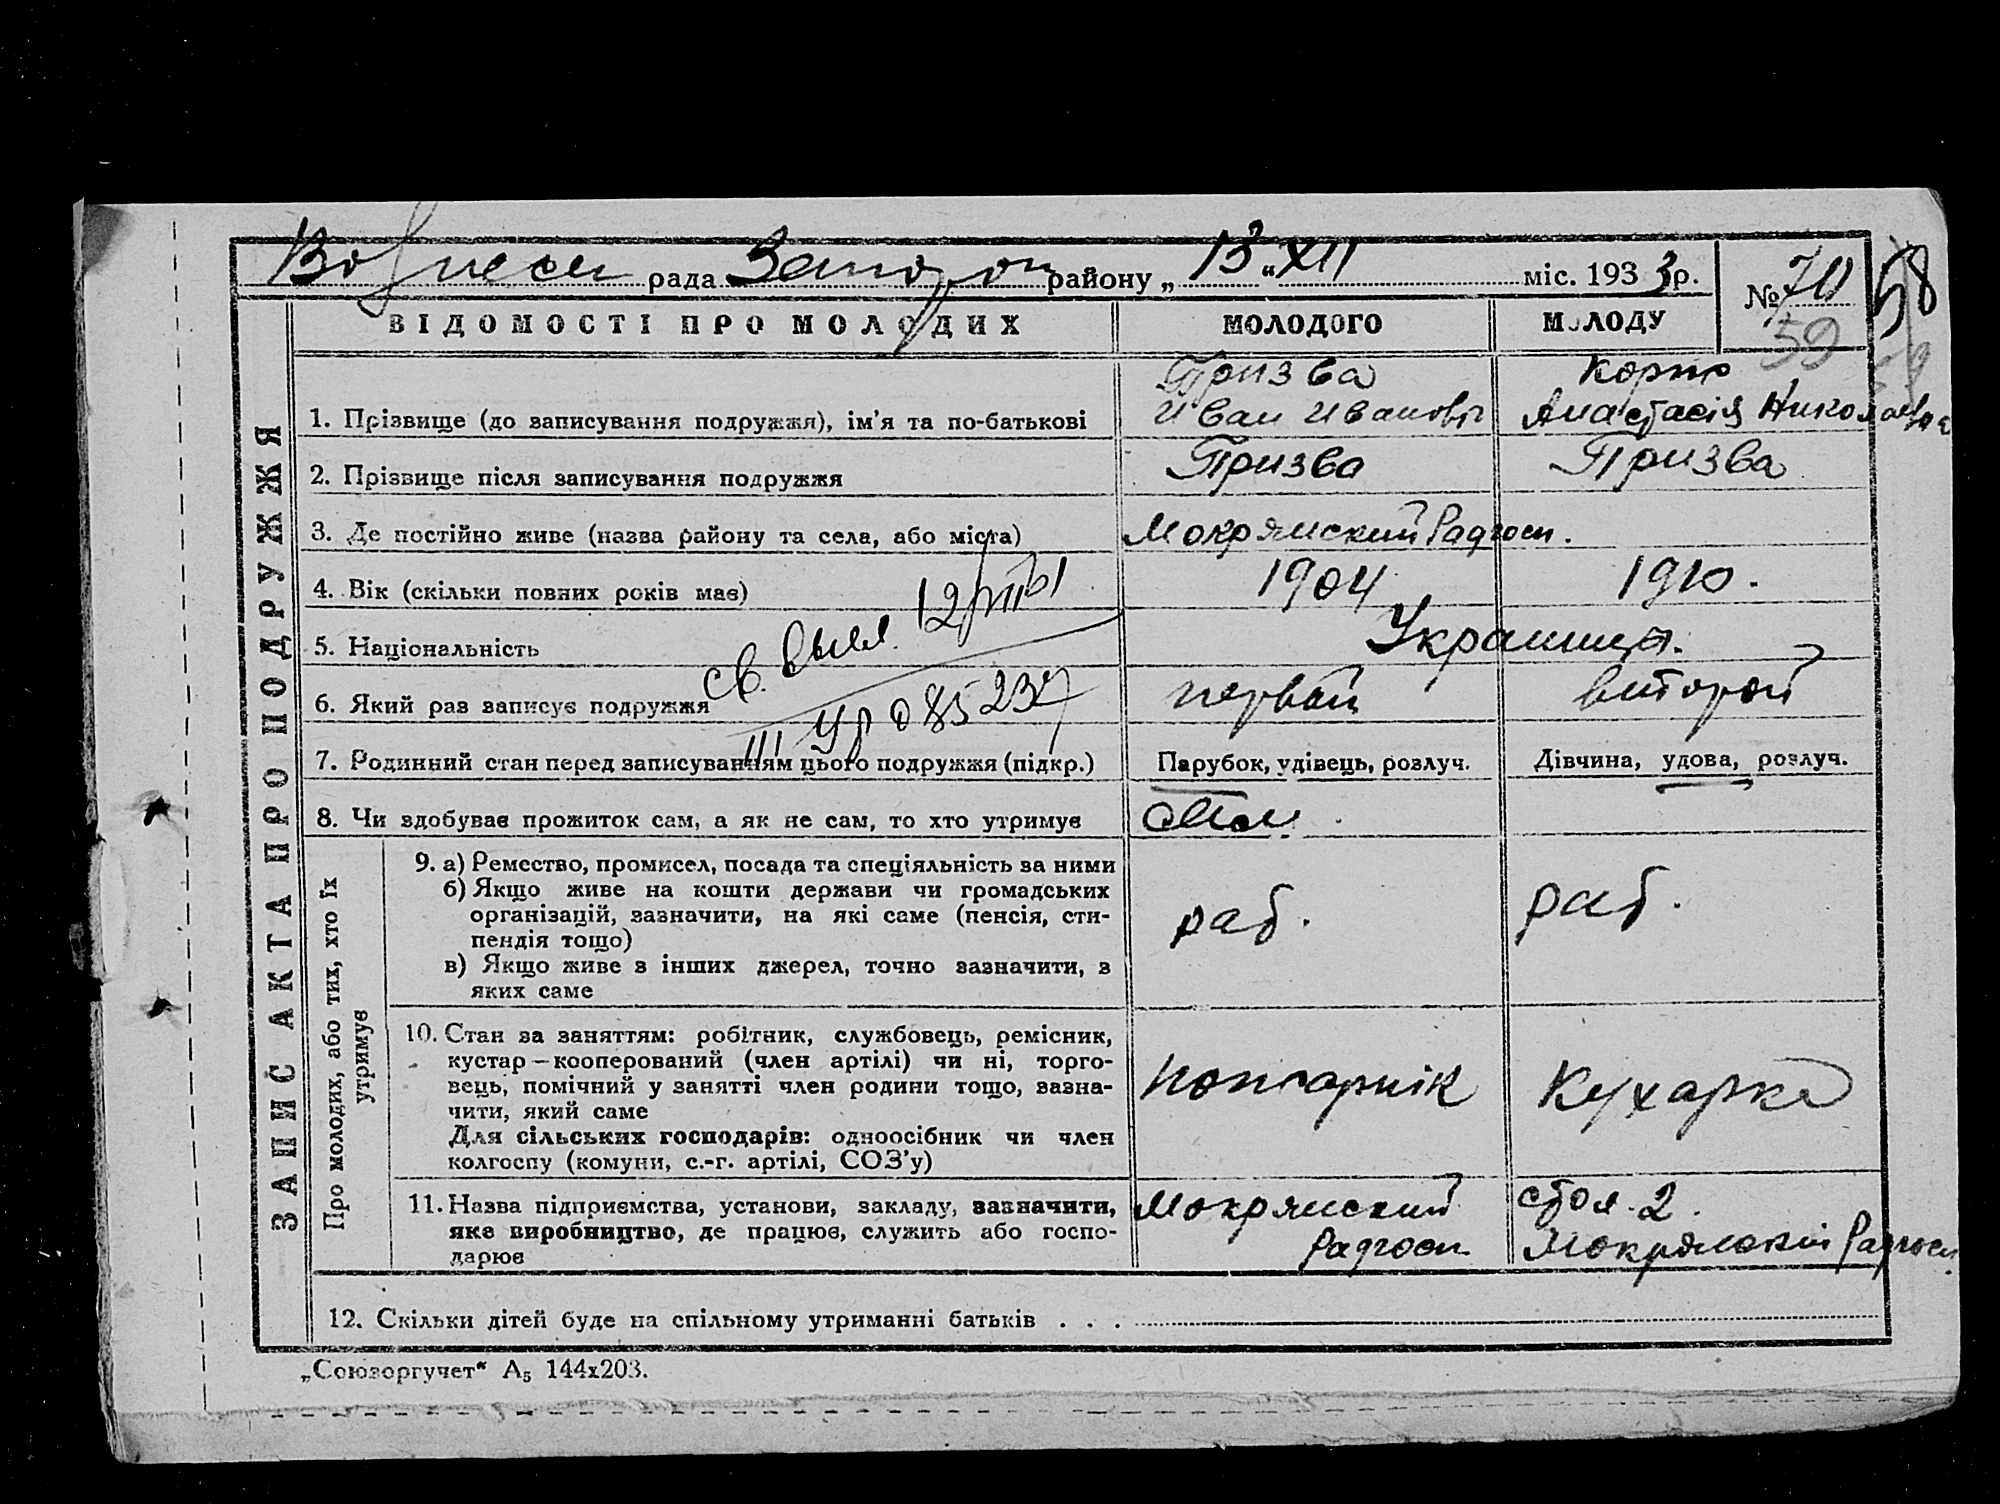 Вознесен рада Запорож району „ 13 “ XII міс. 1933 р.
№ 70
58
59
ВІДОМОСТІ ПРО МОЛОДИХ МОЛОДОГО МОЛОДУ
ЗАПИС АКТА ПРО ПОДРУЖЖЯ
Призва
Иван Иванович
Анастасія Николаевна
1. Прізвище (до записування подружжя), ім'я та по-батькові
2. Прізвище після записування подружжя Призва Призва
3. Де постійно живе (назва району та села, або міста) Мокрянский Радгосп.
4. Вік (скільки повних років має) 1904 1910.
5. Національність Украинца.
св. выд.
6. Який раз записує подружжя первый второй
III УР 085237
7. Родинний стан перед записуванням цього подружжя (підкр.) Парубок, удівець, розлуч. Дівчина, удова, розлуч.
8. Чи здобуває прожиток сам, а як не сам, то хто утримує
Про молодих, або тих, хто їх
утримує
9. а) Ремество, промисел, посада та спеціяльність за ними
б) Якщо живе на кошти держави чи громадських
організацій, зазначити, на які саме (пенсія, сти-
пендія тощо)
в) Якщо живе з інших джерел, точно зазначити, з
яких саме
раб. раб.
10. Стан за заняттям: робітник, службовець, ремісник,
кустар—кооперований (член артілі) чи ні, торго-
вець, помічний у занятті член родини тощо, зазна-
чити, який саме
Для сільських господарів: одноосібник чи член
колгоспу (комуни, с.-г. артілі, СОЗ'у)
пожарнік Кухарка
11. Назва підприємства, установи, закладу, зазначити,
яке виробництво, де працює, служить або госпо-
дарює
Мокрянский
Радгосп
стол. 2.
Мокрянский Радгосп.
12. Скільки дітей буде на спільному утриманні батьків . . .
„Союзоргучет“ А₅ 144х203.